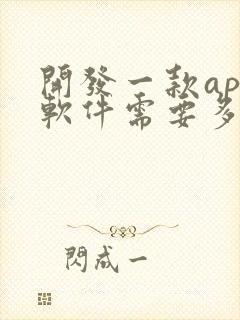 開發一款ap
軟件需要多
閃成一